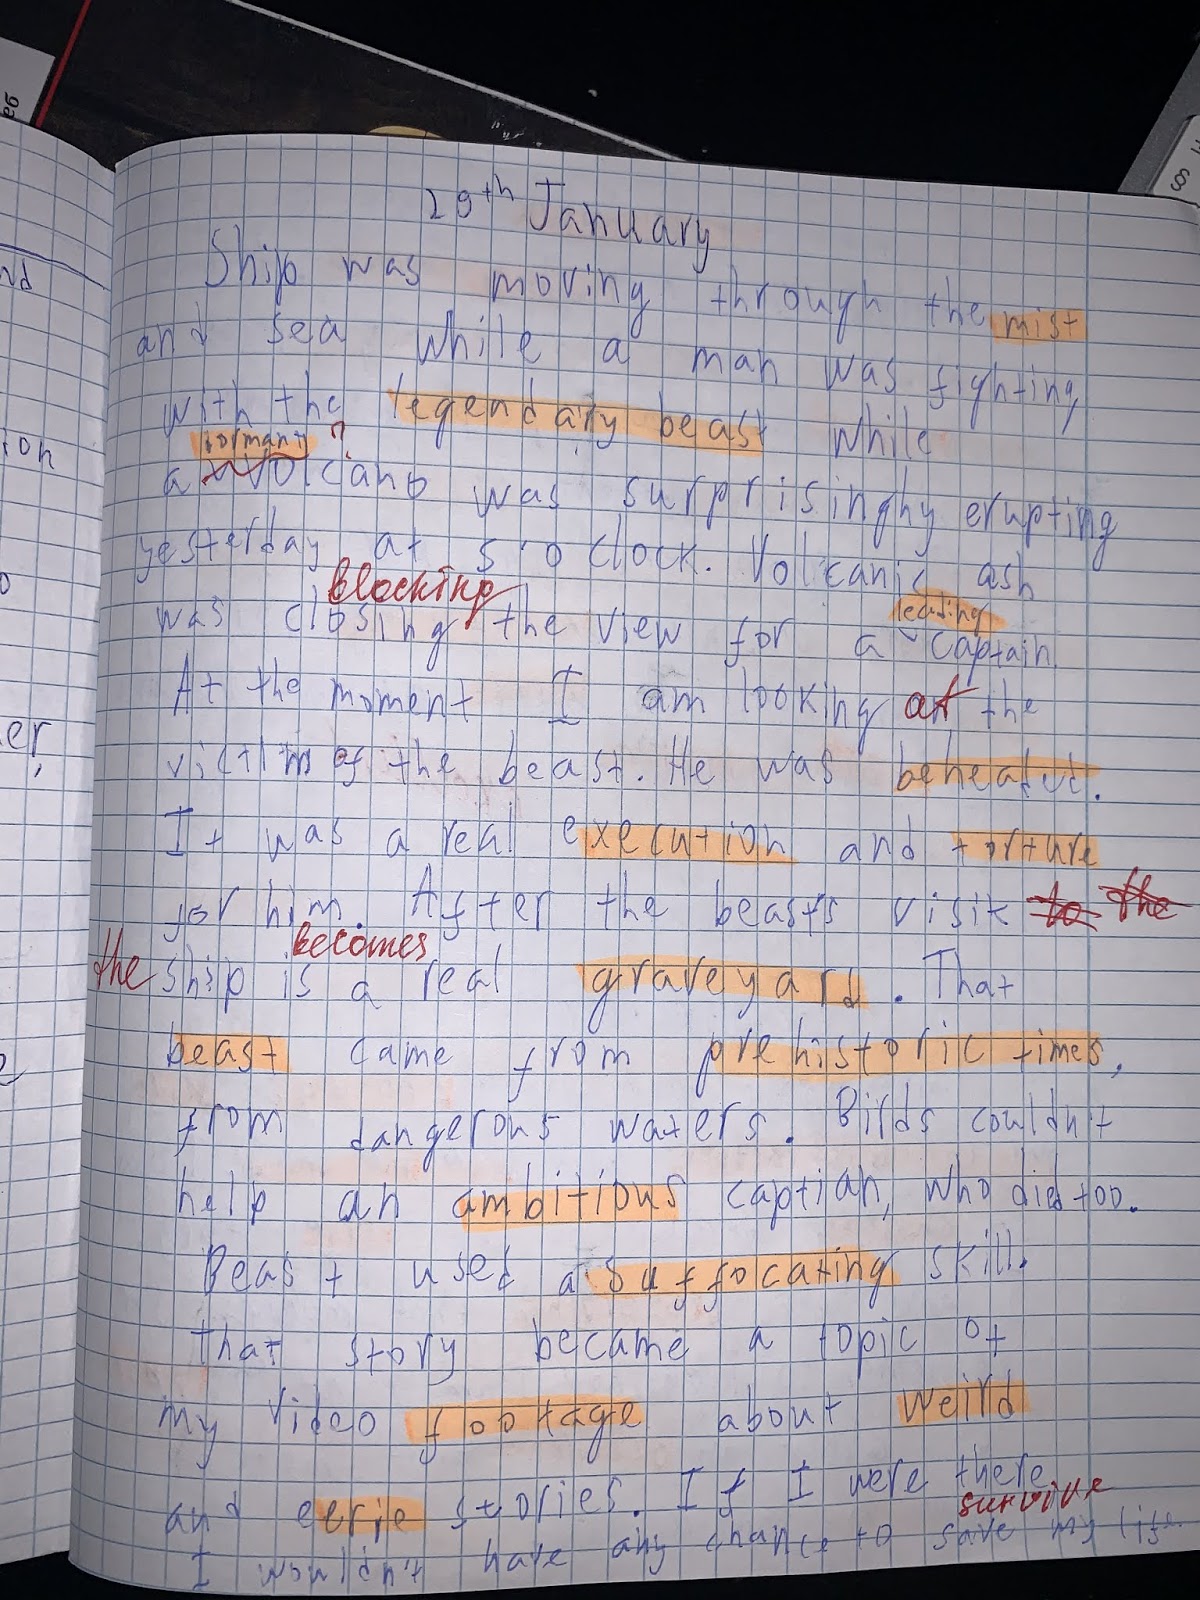 29th January
Ship was moving through the mist
and sea while a man was fighting
with the legendary beast while
?
a volcano was surprisinghy erupting
yesterday at 5 o clock. Volcanic ash
blocking
leading
was closing the view for a captain
At the moment I am looking at the
victim of the beast. He was beheated.
It was a real execution and torture
for him. After the beasts visit to the
becomes
the ship is a real graveyard. That
beast came from prehistoric times,
from dangerous waters. Birds couldn't
help an ambitious captian, who died too.
Beast used a suffocating skill.
that story became a topic of
my video footage about weird
and eerie stories. If I were there
survive
I wouldn't have any chance to save my life.